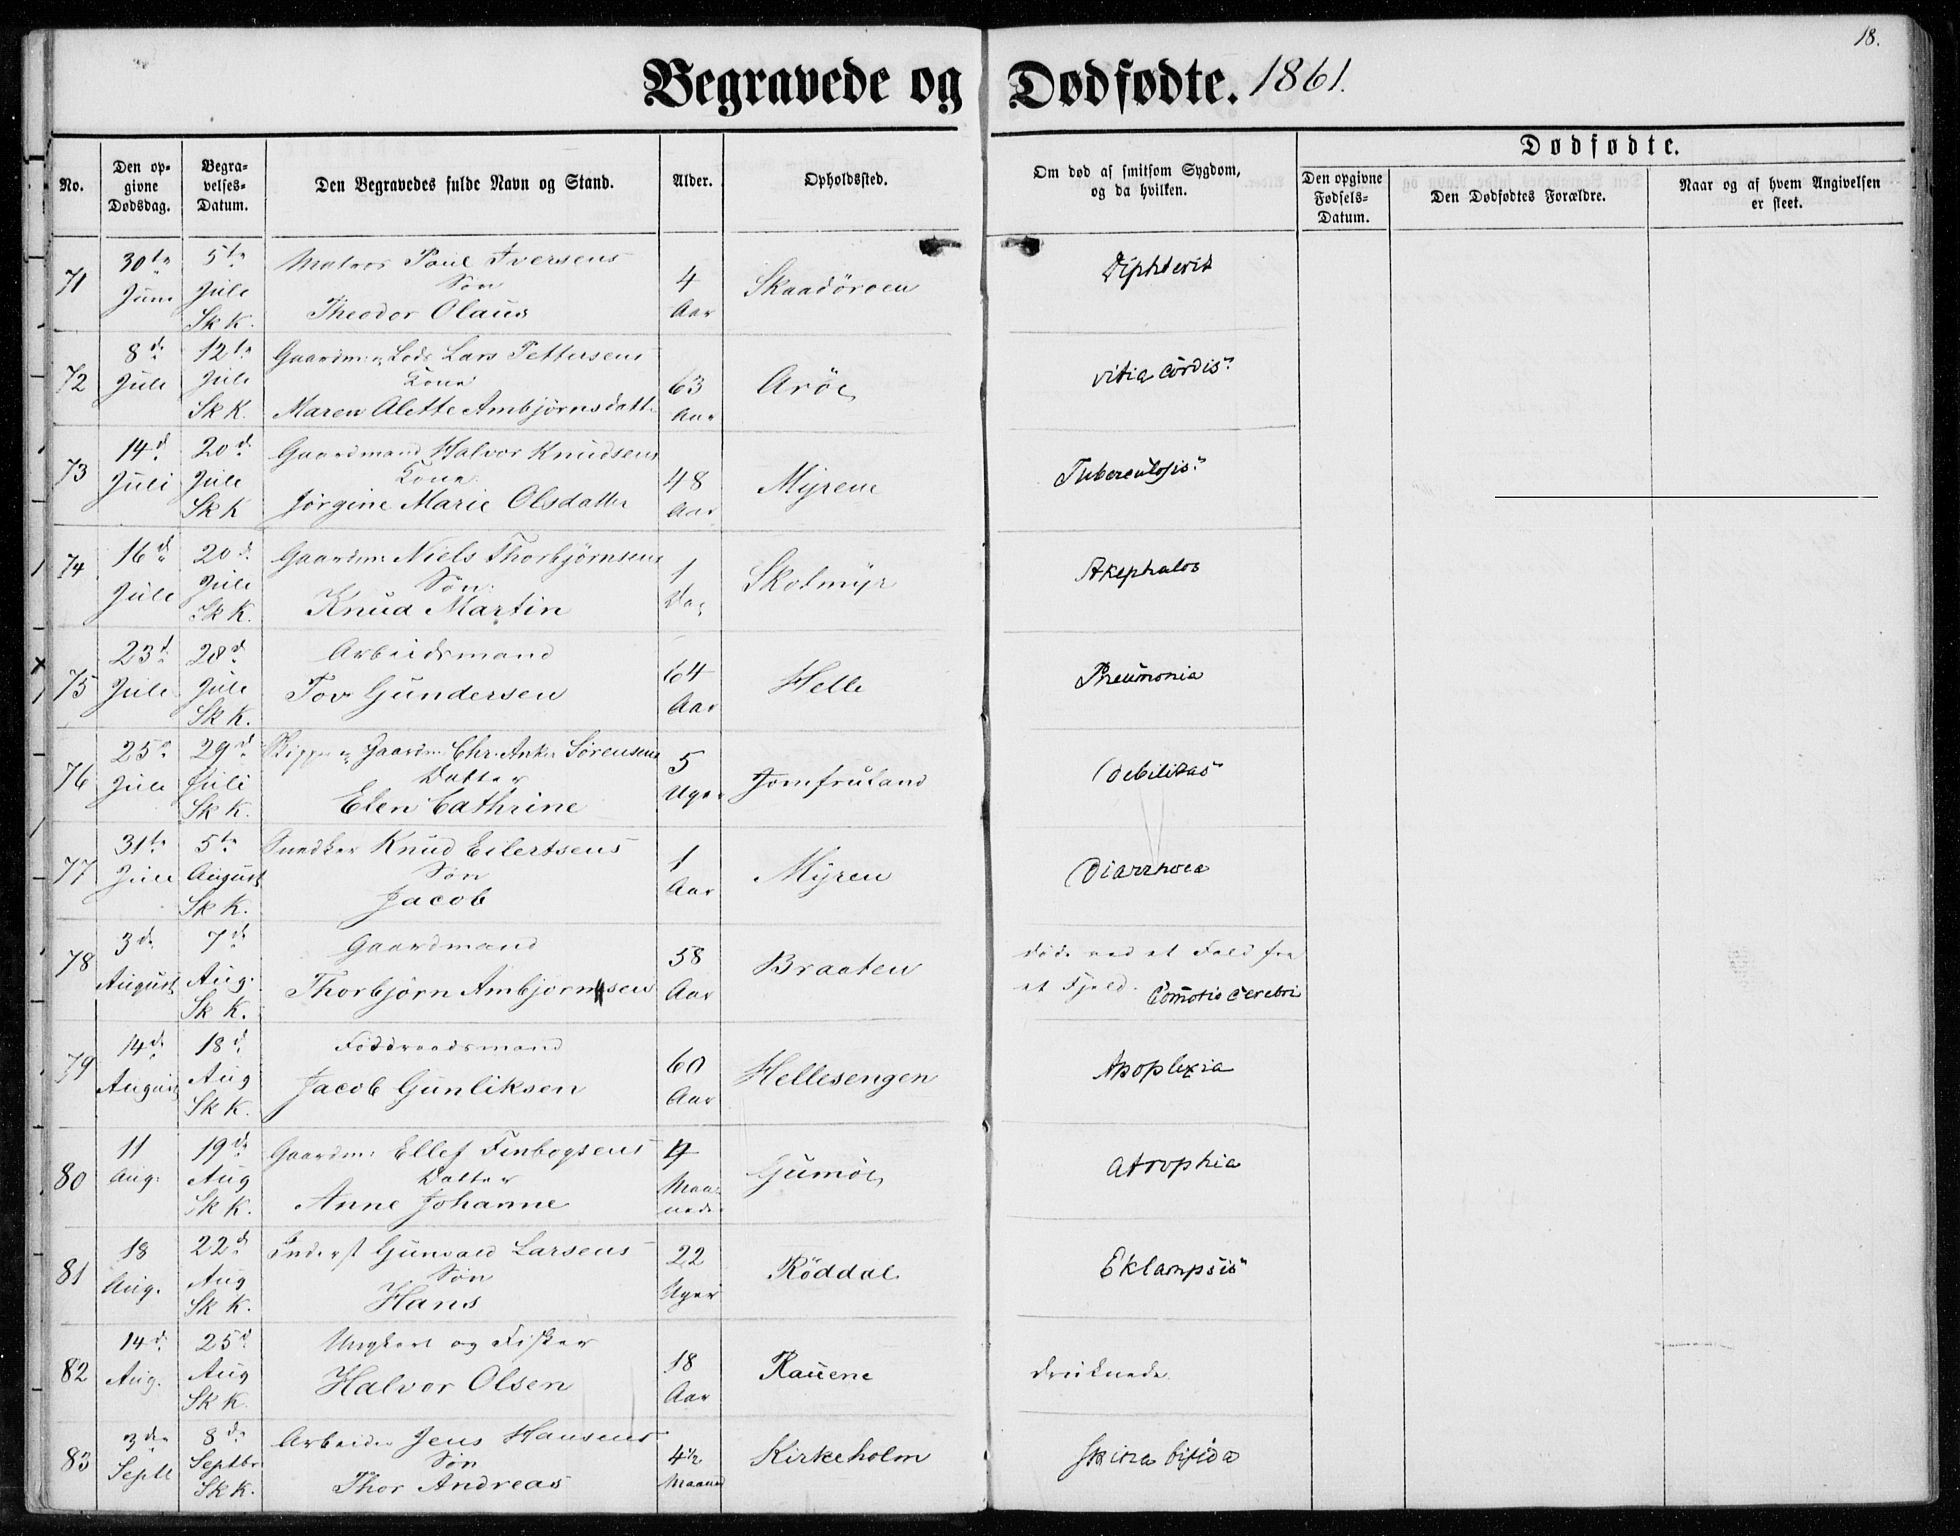 18.
Begravede og Dødfødte. 1861.
No.
Den opgivne Dødsdag.
Begravelses-Datum.
Den Begravedes fulde Navn og Stand.
Alder.
Opholdssted.
Om død af smitsom Sygdom, og da hvilken.
Dødfødte.
Den opgivne Fødsels-Datum.
Den Dødfødtes Forældre.
Naar og af hvem Angivelsen er skeet.
71 30te Juni 5te Juli Sk K. Matros Poul Iversens Søn Theodor Olaus 4 Aar Skaadøroen Diphterit
72 8de Juli 12te Juli Sk K. Gaardm: Lods Lars Pettersens Kone Maren Alette Ambjørnsdatt: 63 Aar Arøe vitia cordis
73 14d Juli 20d Juli Sk K Gaardmand Halvor Knudsens Kone Jørgine Marie Olsdatter 48 Aar Myrene Tuberculosis
74 16d Juli 20d Juli Sk K. Gaardm: Niels Thorbjørnsens Søn Knud Martin 1 Dag Skolmyr Akephalos
75 23d Juli 28d Juli Sk K. Arbeidsmand Tov Gundersen 64 Aar Helle Pneumonia
76 25d Juli 29d Juli Sk K. Skipper Gaardm: Chr. Anker Sørensens Datter Elen Cathrine 5 Uger Jomfruland Debilitas
77 31te Juli 5te August Sk K. Snedker Knud Eilertsens Søn Jacob 1 Aar Myren Diarrhoea
78 3de August 7de Aug. Sk K. Gaardmand Thorbjørn Ambjørnsen 58 Aar Braaten døde ved et Fald fra et Fjeld. Comotio cerebri
79 14de August 18d Aug Sk K. Føderaadsmand Jacob Gunliksen 60 Aar Hellesengen Apoplexia
80 11 Aug. 19de Aug Sk K. Gaardm: Ellef Finbogsens Datter Anne Johanne 4 Maaneder Gumøe Atrophia
81 18 Aug. 22d Aug Sk K. Inderst Gunvald Larsens Søn Hans 22 Uger Røddal Eklampsis
82 14d Aug. 25d Aug Sk K. Ungkarl og Fisker Halvor Olsen 18 Aar Rauene druknede.
83 3de Septb 8de Septbr Sk K. Arbeider Jens Hansens Søn Thor Andreas 4½ Maaned Kirkeholm Spina bifida